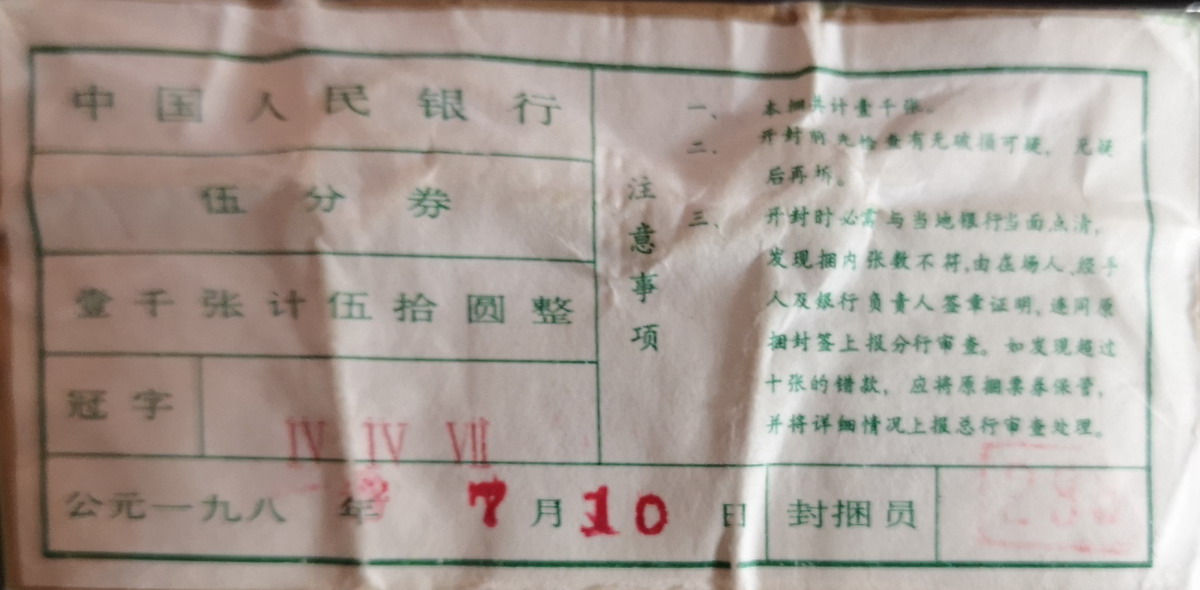 中国人民银行
伍分券
壹千张计伍拾圆整
冠字
IV IV VII
公元一九八2年 7月10日
封捆员
注意事项
一、本捆共计壹千张。
二、开封前先检查有无破损可疑，见疑
后再拆。
三、开封时必需与当地银行当面点清，
发现捆内张数不符,由在场人、经手
人及银行负责人签章证明,连同原
捆封签上报分行审查。如发现超过
十张的错款，应将原捆票券保管，
并将详细情况上报总行审查处理。